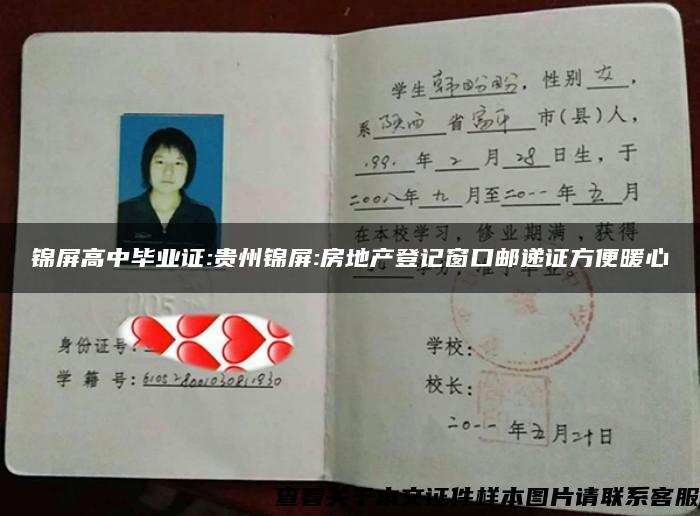 学生韩盼盼，性别女，
系陕西省富平市(县)人，
1991年2月28日生，于
二00八年九月至二0一一年五月
在本校学习，修业期满，获得
学分，准予毕业。
锦屏高中毕业证:贵州锦屏:房地产登记窗口邮递证方便暖心
005
身份证号:
学籍号:
学校:
校长:
二0一一年五月二十日
查看关于本文证件样本图片请联系客服